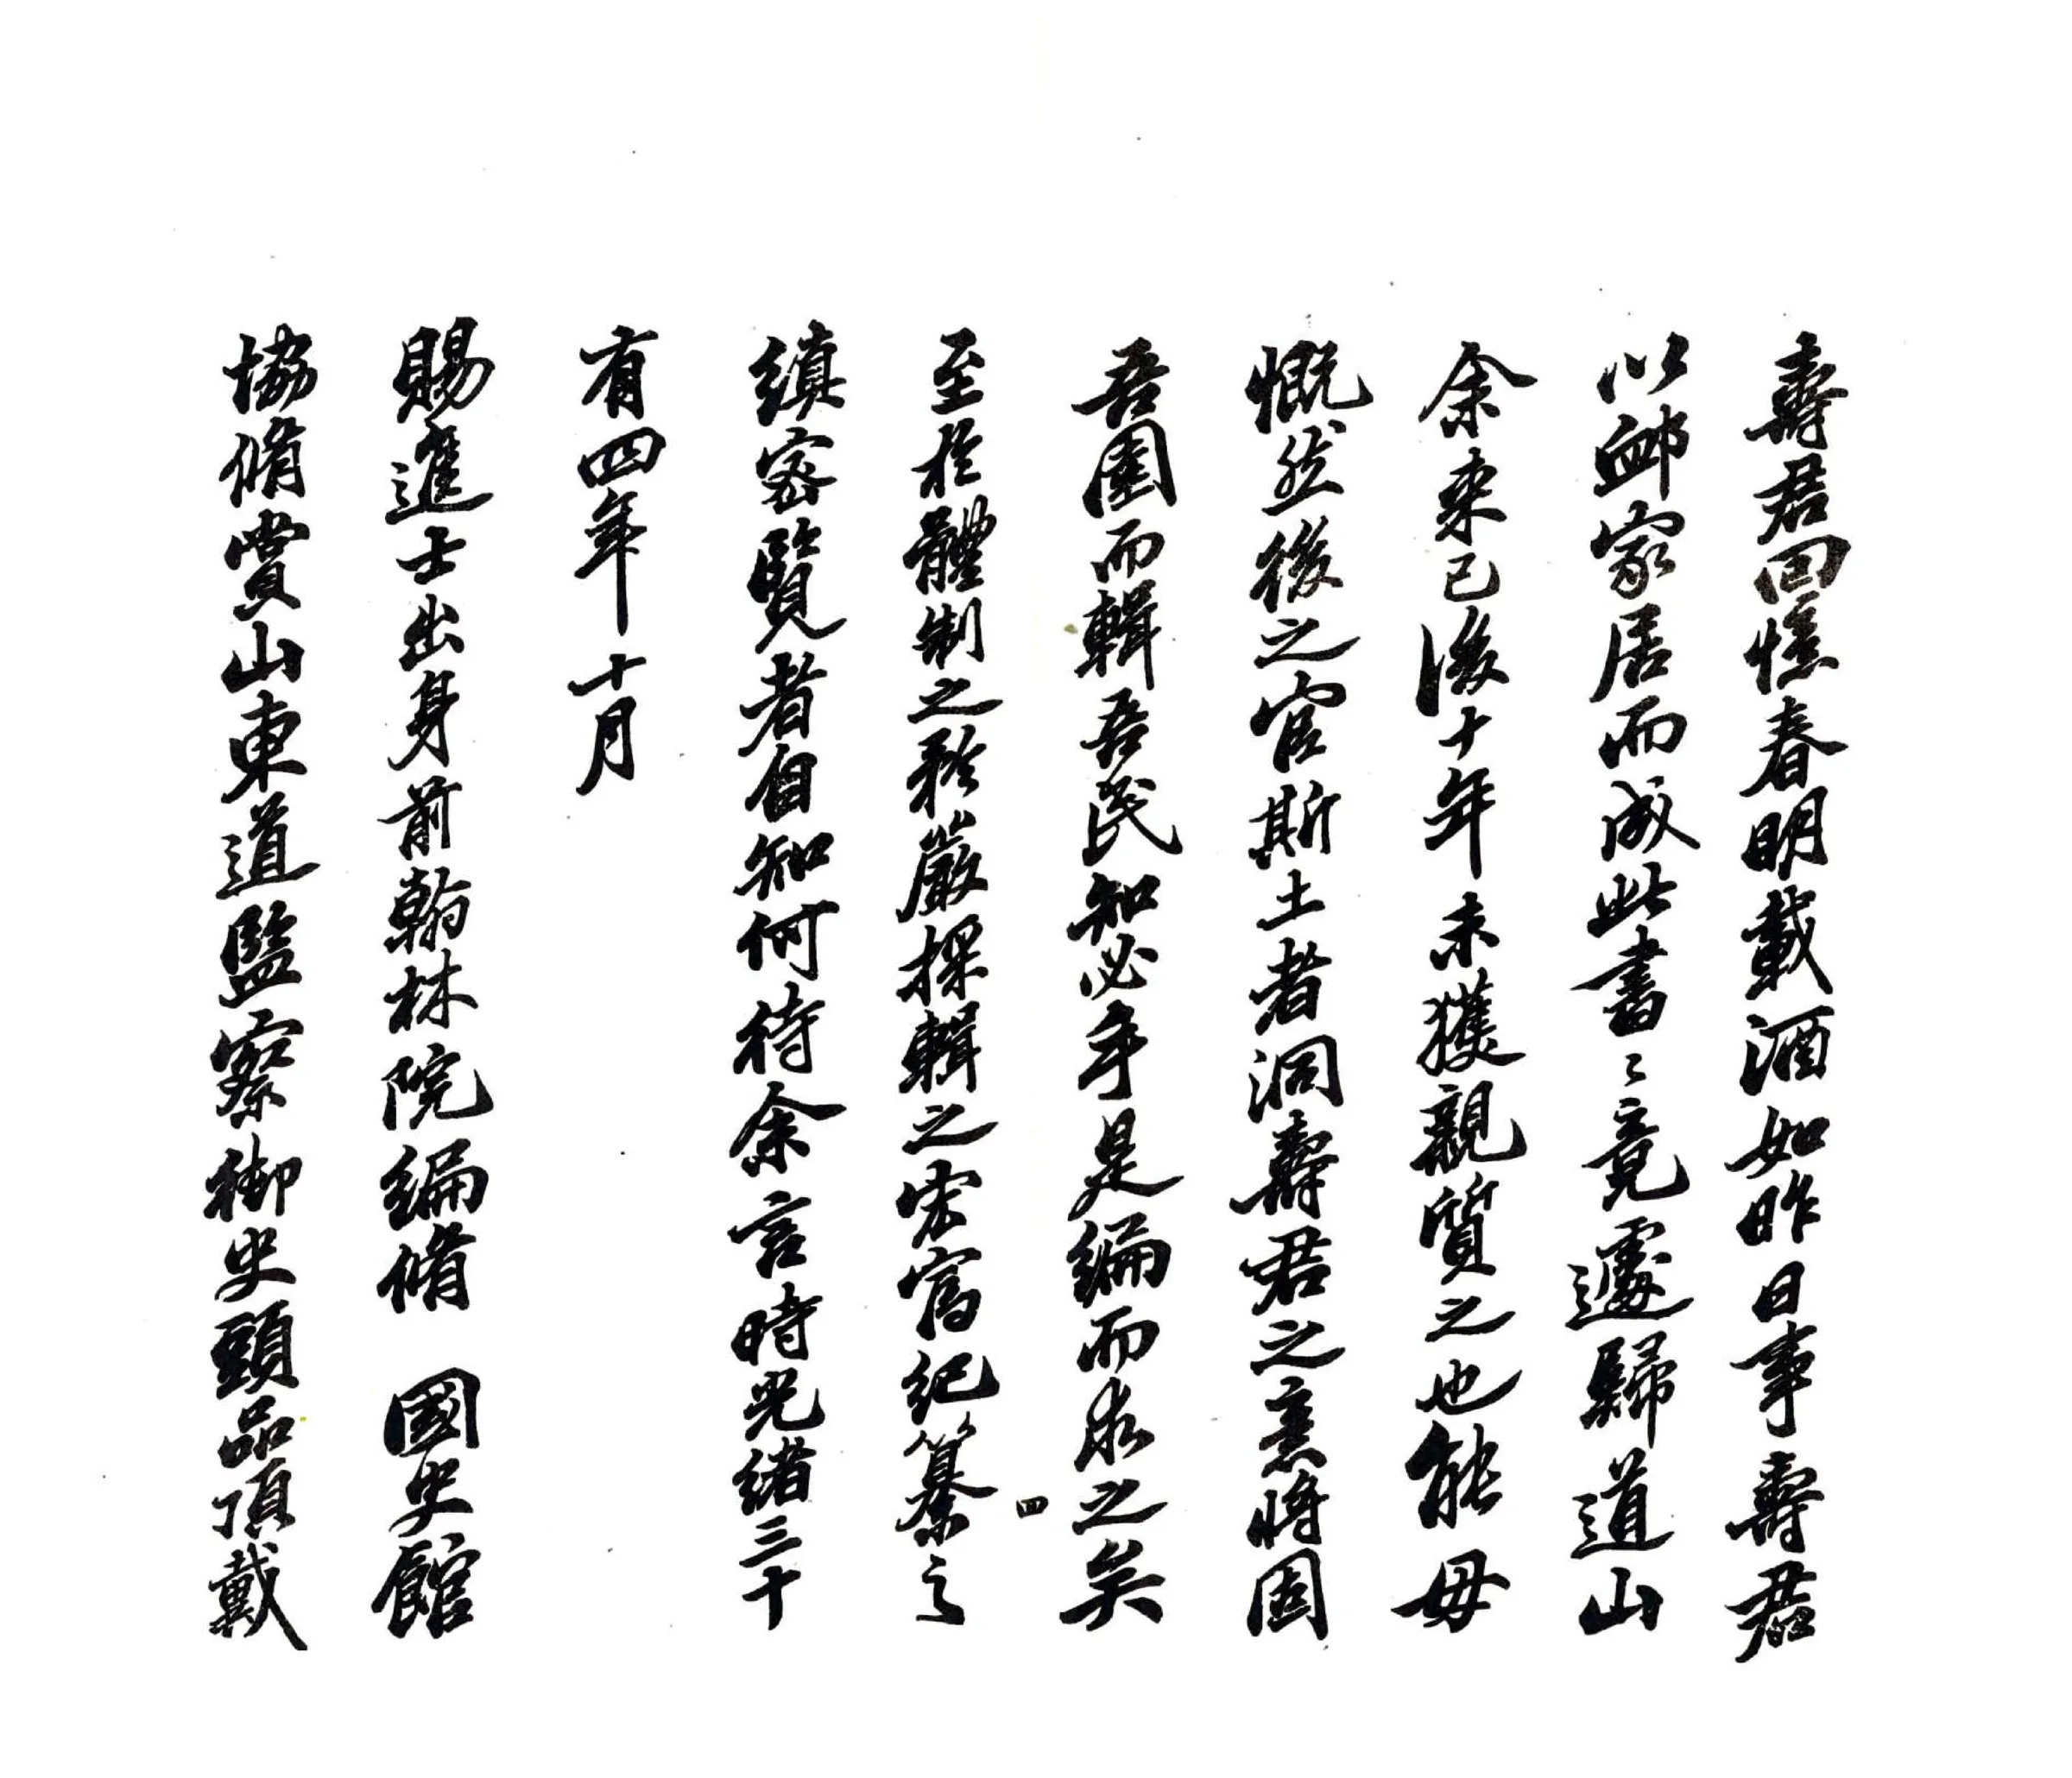 壽君回憶春明載酒如昨日事壽君
以卹家居而成此書〻竟遽歸道山
余来已後十年未獲親質之也能毋
慨然後之官斯土者洞壽君之意將固
吾圉而輯吾民知必手是編而求之矣
至於體制之矜嚴採輯之宏富紀纂之
縝密覽者自知何待余言時光緒三十
有四年十月
賜進士出身前翰林院編脩 國史館
協脩掌山東道監察御史頭品頂戴
四